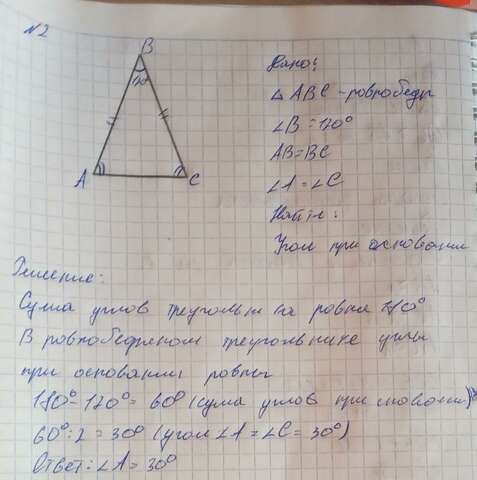 №2
B
120°
A
C
Дано:
△ABC - равнобедр
∠B = 120°
AB = BC
∠A = ∠C
Найти:
Угол при основании
Решение:
Сума углов треугольника равна 180°
В равнобедреном треугольнике углы
при основании равны
180° - 120° = 60° (сума углов при основании)
60° : 2 = 30° (угол ∠A = ∠C = 30°)
Ответ: ∠A = 30°